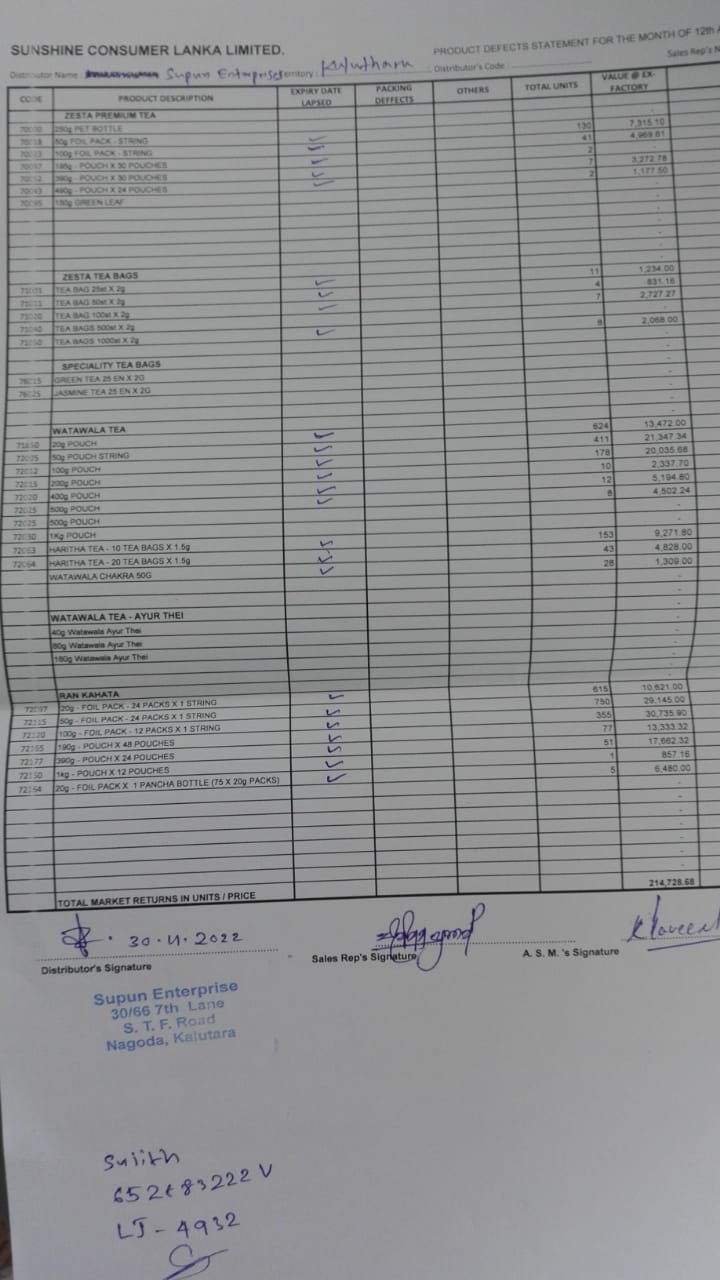 SUNSHINE CONSUMER LANKA LIMITED.
PRODUCT DEFECTS STATEMENT FOR THE MONTH OF 12th
Sales Rep's N
Distributor Name : Supun Enterprises Territory : Kaluthara Distributor's Code :
CODE PRODUCT DESCRIPTION EXPIRY DATE LAPSED PACKING DEFFECTS OTHERS TOTAL UNITS VALUE @ EX-FACTORY
ZESTA PREMIUM TEA -
250g PET BOTTLE 130 7,315.10
50g FOIL PACK - STRING 41 4,969.61
100g FOIL PACK - STRING 2
POUCH X 30 POUCHES 7 3,272.78
POUCH X 30 POUCHES 2 1,177.50
POUCH X 24 POUCHES -
GREEN LEAF -
ZESTA TEA BAGS 11 1,234.00
TEA BAG 25st X 2g 4 831.16
TEA BAG 50st X 2g 7 2,727.27
TEA BAG 100st X 2g -
TEA BAGS 500st X 2g 8 2,068.00
TEA BAGS 1000st X 2g -
SPECIALITY TEA BAGS
GREEN TEA 25 EN X 2G
JASMINE TEA 25 EN X 2G
WATAWALA TEA 624 13,472.00
20g POUCH 411 21,347.34
50g POUCH STRING 178 20,035.68
100g POUCH 10 2,337.70
200g POUCH 12 5,194.80
400g POUCH 8 4,502.24
500g POUCH -
500g POUCH -
1Kg POUCH 153 9,271.80
HARITHA TEA - 10 TEA BAGS X 1.5g 43 4,828.00
HARITHA TEA - 20 TEA BAGS X 1.5g 28 1,309.00
WATAWALA CHAKRA 50G -
WATAWALA TEA - AYUR THEI
40g Watawala Ayur Thei
80g Watawala Ayur Thei
180g Watawala Ayur Thei
RAN KAHATA 615 10,621.00
20g - FOIL PACK - 24 PACKS X 1 STRING 750 29,145.00
50g - FOIL PACK - 24 PACKS X 1 STRING 355 30,735.90
100g - FOIL PACK - 12 PACKS X 1 STRING 77 13,333.32
190g - POUCH X 48 POUCHES 51 17,662.32
390g - POUCH X 24 POUCHES 1 857.16
1kg - POUCH X 12 POUCHES 5 6,480.00
20g - FOIL PACK X 1 PANCHA BOTTLE (75 X 20g PACKS) -
214,728.68
TOTAL MARKET RETURNS IN UNITS / PRICE
30-11-2022
Distributor's Signature Sales Rep's Signature A. S. M. 's Signature
Supun Enterprise
30/66 7th Lane
S. T. F. Road
Nagoda, Kalutara
Sujith
LJ - 4932